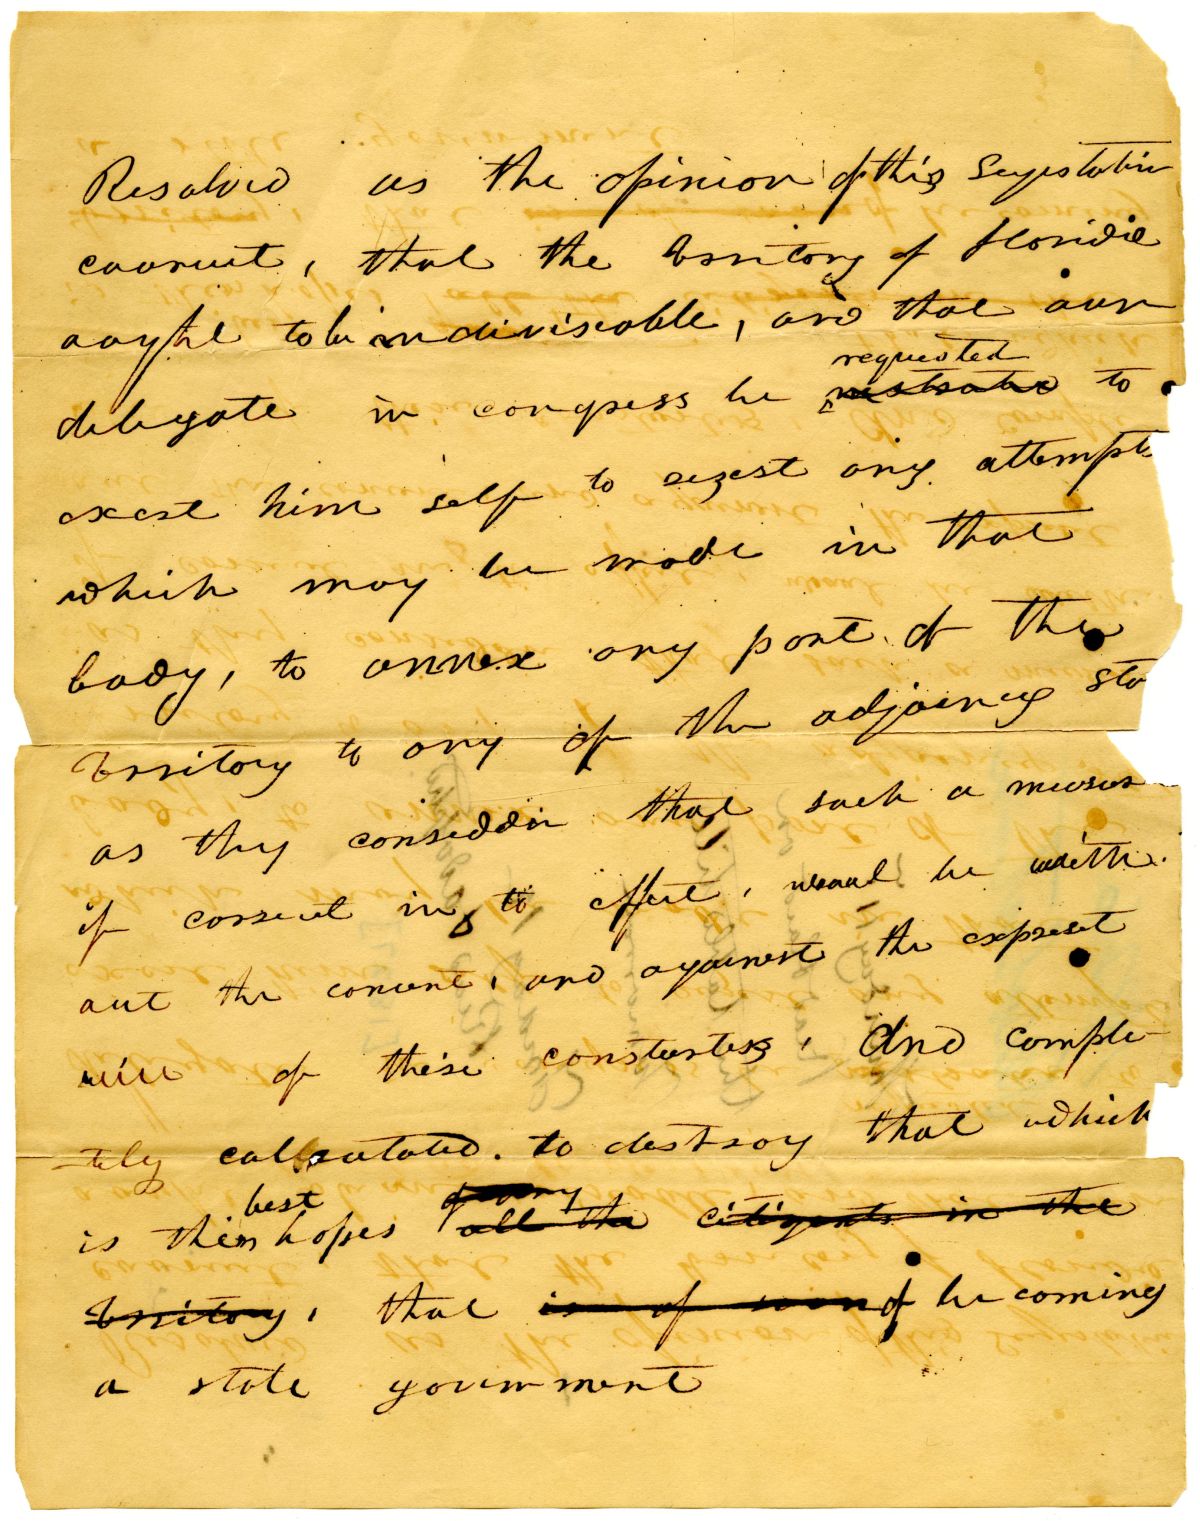 Resolved as the opinion of this Legestativ
councut, that the Territory of Floridia
ought to be indiviseable, and that our
delegate in congress be requested to
exest him self to rezest any attempt
which may be made in that
body, to annex any part of the
Territory to any of the adjoineg sta
as they conseddir that such a measur
if carreut in to effect, would be with
out the concent, and against the expreset
will of these constestes, And comple-
tely callcutated. to destroy that which
is their best hopes all the citizents in the
Territory, that is of soon of becoming
a state government